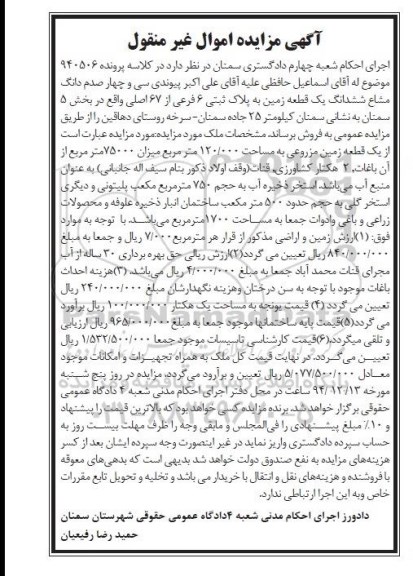 آگهی مزایده اموال غیر منقول
اجرای احکام شعبه چهارم دادگستری سمنان در نظر دارد در کلاسه پرونده ۹۴۰۵۰۶
موضوع له آقای اسماعیل حافظی علیه آقای علی اکبر پیوندی سی و چهار صدم دانگ
مشاع ششدانگ یک قطعه زمین به پلاک ثبتی ۶ فرعی از ۶۷ اصلی واقع در بخش ۵
سمنان به نشانی سمنان کیلومتر ۲۵ جاده سمنان-سرخه روستای دهاقین را از طریق
مزایده عمومی به فروش برساند. مشخصات ملک مورد مزایده:مورد مزایده عبارت است
از یک قطعه زمین مزروعی به مساحت ۱۲۰/۰۰۰ متر مربع میزان ۷۵۰۰۰متر مربع از
آن باغات، ۲ هکتار کشاورزی، قنات(وقف اولاد ذکور بنام سیف اله جانبانی) به عنوان
منبع آب می‌باشد. استخر ذخیره آب به حجم ۷۵۰ مترمربع مکعب پلیتونی و دیگری
استخر گلی به حجم حدود ۵۰۰ متر مکعب ساختمان انبار ذخیره علوفه و محصولات
زراعی و باغی وادوات جمعا به مساحت ۱۷۰۰مترمربع می‌باشد. با توجه به موارد
فوق: (۱)ارزش زمین و اراضی مذکور از قرار هر مترمربع۷/۰۰۰ ریال و جمعا به مبلغ
۸۴۰/۰۰۰/۰۰۰ ریال تعیین می گردد(۲)ارزش ریالی حق بهره برداری ۳۰ ساله از آب
مجرای قنات محمد آباد جمعا به مبلغ ۴/۰۰۰/۰۰۰ ریال می‌باشد. (۳)هزینه احداث
باغات موجود با توجه به سن درختان وهزینه نگهدارشان مبلغ ۲۴۰/۰۰۰/۰۰۰ ریال
تعیین می گردد (۴) قیمت یونجه به مساحت یک هکتار ۱۰۰/۰۰۰/۰۰۰ ریال برآورد
می گردد(۵)قیمت پایه ساختمانها موجود جمعا به مبلغ ۹۶۵/۰۰۰/۰۰۰ ریال ارزیابی
و تلقی میگردد.(۶)قیمت کارشناسی تاسیسات موجود جمعا ۱/۵۳۲/۵۰۰/۰۰۰ ریال
تعییــن می‌گــردد. در نهایت قیمت کل ملک به همراه تجهیــزات و امکانات موجود
معــادل ۵/۰۷۷/۵۰۰/۰۰۰ ریال تعیین و برآورد می‌گردد، مزایده در روز پنج شــنبه
مورخه ۹۴/۱۲/۱۳ ساعت در محل دفتر اجرای احکام مدنی شعبه ۴ دادگاه عمومی
حقوقی برگزار خواهد شد. برنده مزایده کسی خواهد بود که بالاترین قیمت را پیشنهاد
و ۱۰٪ مبلغ پیشــنهادی را فی‌المجلس و مابقی وجه را ظرف مهلت بیســت روز به
حساب سپرده دادگستری واریز نماید در غیر اینصورت وجه سپرده ایشان بعد از کسر
هزینه‌های مزایده به نفع صندوق دولت خواهد شد بدیهی است که بدهی‌های معوقه
با فروشنده و هزینه‌های نقل و انتقال با خریدار می باشد و تخلیه و تحویل تابع مقررات
خاص وبه این اجرا ارتباطی ندارد.
دادورز اجرای احکام مدنی شعبه ۴دادگاه عمومی حقوقی شهرستان سمنان
حمید رضا رفیعیان